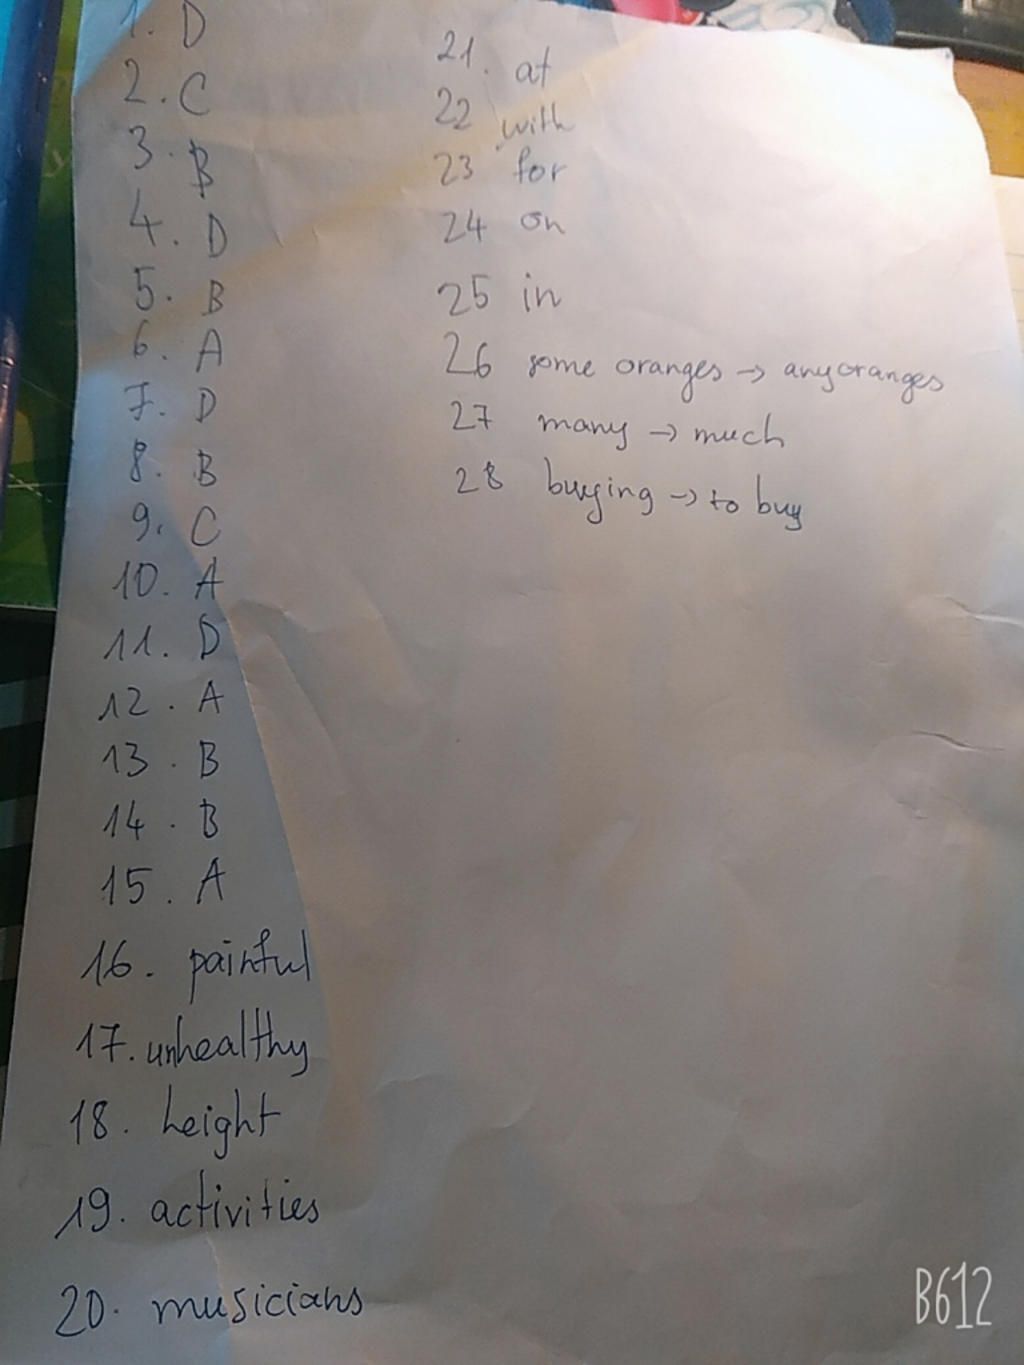 1. D
2. C
3. B
4. D
5. B
6. A
7. D
8. B
9. C
10. A
11. D
12. A
13. B
14. B
15. A
16. painful
17. unhealthy
18. height
19. activities
20. musicians
21. at
22 with
23 for
24 on
25 in
26 some oranges → any oranges
27 many → much
28 buying → to buy
B612